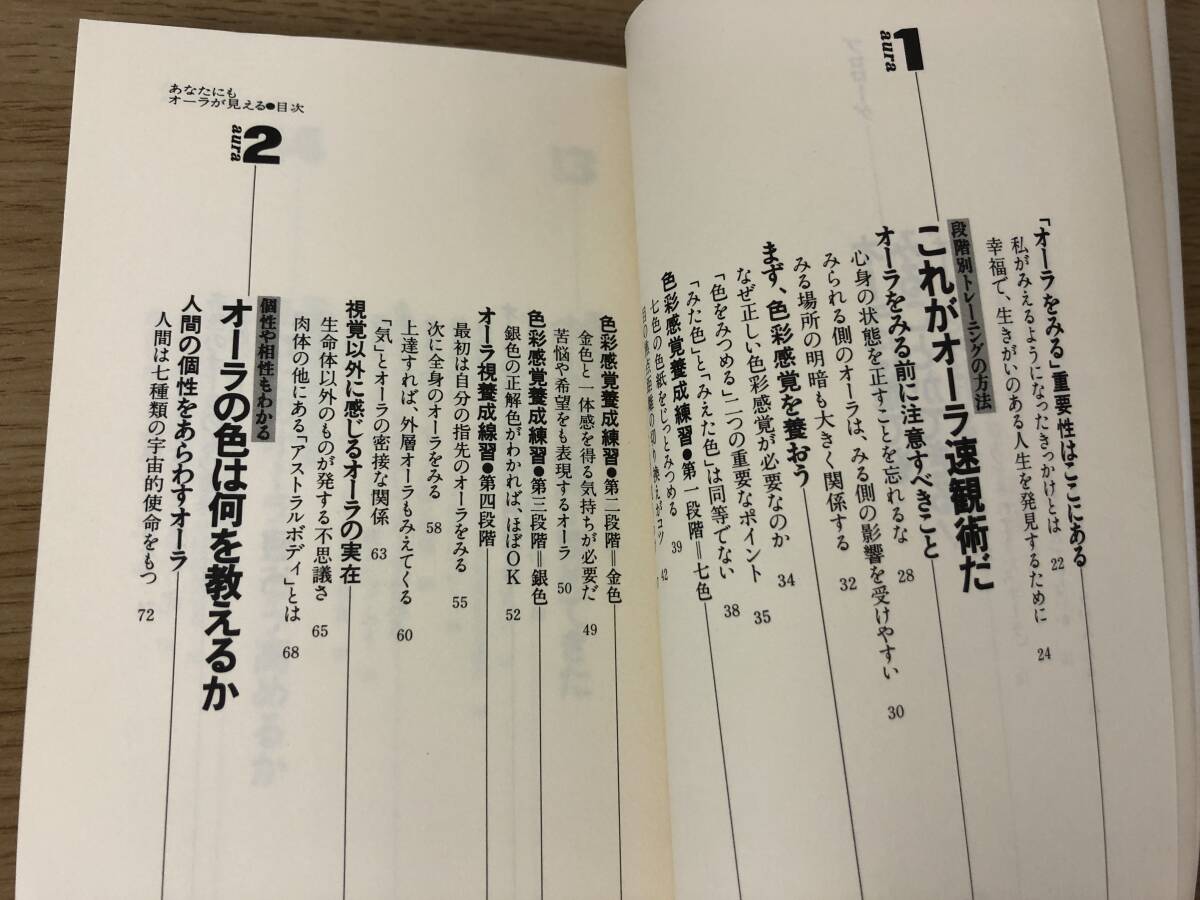 「オーラをみる」重要性はここにある
私がみえるようになったきっかけとは 22
幸福で、生きがいのある人生を発見するために 24
1
aura
段階別トレーニングの方法
これがオーラ速観術だ
オーラをみる前に注意すべきこと
心身の状態を正すことを忘れるな 28
みられる側のオーラは、みる側の影響を受けやすい 30
みる場所の明暗も大きく関係する 32
まず、色彩感覚を養おう
なぜ正しい色彩感覚が必要なのか 34
「色をみつめる」二つの重要なポイント 35
「みた色」と「みえた色」は同等でない 38
色彩感覚養成練習●第一段階=七色
七色の色紙をじっとみつめる 39
切り換えがコツ 42
あなたにも
オーラが見える●目次
色彩感覚養成練習●第二段階=金色
金色と一体感を得る気持ちが必要だ 49
苦悩や希望をも表現するオーラ 50
色彩感覚養成練習●第三段階=銀色
銀色の正解色がわかれば、ほぼOK 52
オーラ視養成練習●第四段階
最初は自分の指先のオーラをみる 55
次に全身のオーラをみる 58
上達すれば、外層オーラもみえてくる 60
「気」とオーラの密接な関係 63
視覚以外に感じるオーラの実在
生命体以外のものが発する不思議さ 65
肉体の他にある「アストラルボディ」とは 68
2
aura
個性や相性もわかる
オーラの色は何を教えるか
人間の個性をあらわすオーラ
人間は七種類の宇宙的使命をもつ 72